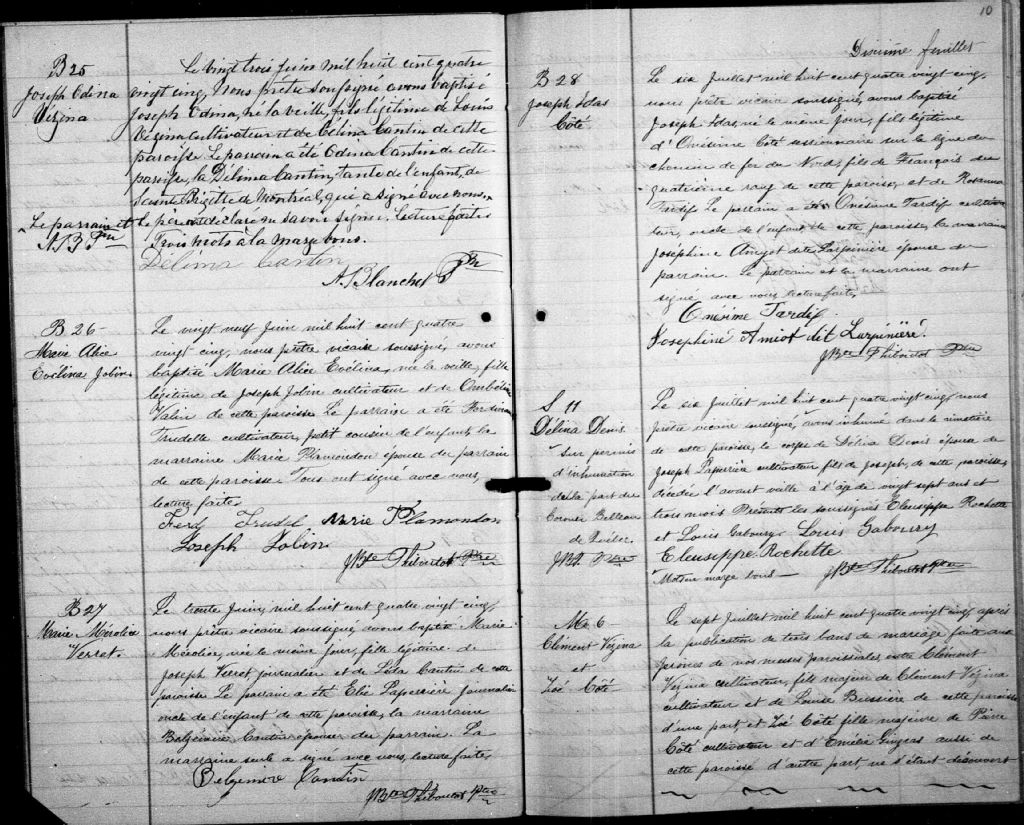 B 25
Joseph Odina
Vézina
Le vingt trois Juin mil huit cent quatre
vingt cinq, Nous prêtre soussigné avons baptisé
Joseph Odina, né la veille, fils légitime de Louis
Vézina cultivateur et de Célina Cantin de cette
paroisse. Le parrain a été Odina Cantin de cette
paroisse, la Délima Cantin, tante de l'enfant, de
Sainte Brigitte de Montréal, qui a signé avec nous.
Le parrain et
A. B. Ptre
Le père ont déclaré ne savoir signer. Lecture faite.
Trois mots à la marge bons.
Délima Cantin
A. Blanchet Ptre
B 26
Marie Alice
Evelina Jobin
Le vingt neuf Juin mil huit cent quatre
vingt cinq, nous prêtre vicaire soussigné, avons
baptisé Marie Alice Evelina, née la veille, fille
légitime de Joseph Jobin cultivateur et de Ombéline
Valin de cette paroisse. Le parrain a été Ferdinand
Trudelle cultivateur, petit cousin de l'enfant, la
marraine Marie Plamondon épouse du parrain
de cette paroisse. Tous ont signé avec nous,
lecture faite.
Ferd Trudel Marie Plamondon
Joseph Jobin
JBte Thiboutot Ptre
B 27
Marie Mérolise
Verret.
Le trente Juin, mil huit cent quatre vingt cinq,
nous prêtre vicaire soussigné, avons baptisé Marie
née le même jour, fille légitime de
Joseph Verret journalier et de Léda Cantin de cette
paroisse. Le parrain a été Elie Laperrière journalier
oncle de l'enfant de cette paroisse, la marraine
Belzémire Cantin épouse du parrain. La
marraine seule a signé avec nous, lecture faite.
Belzemire Cantin
JBte Thiboutot Ptre
10
Dixième feuillet
B 28
Joseph Idas
Côté
Le six Juillet mil huit cent quatre vingt cinq,
nous prêtre vicaire soussigné, avons baptisé
Joseph Idas, né le même jour, fils légitime
d'Onésime Côté sectionnaire sur la ligne du
chemin de fer du Nord, fils de François du
quatrième rang de cette paroisse, et de Rosanna
Tardif. Le parrain a été Onésime Tardif cultiva-
teur, oncle de l'enfant de cette paroisse, la marraine
Joséphine Amyot dite Larpinière épouse du
parrain. Le parrain et la marraine ont
signé avec nous, lecture faite.
Onésime Tardif
Josephine Amiot dit Larpinière.
JBte Thiboutot Ptre
S 11
Délina Denis
Sur permis
d'inhumation
de la part du
Coroner Belleau
de Québec
JBT. Ptre
Le six Juillet mil huit cent quatre vingt cinq, nous
prêtre vicaire soussigné, avons inhumé dans le cimetière
de cette paroisse, le corps de Délina Denis épouse de
Joseph Laperrière cultivateur fils de Joseph, de cette paroisse,
décédée l'avant veille à l'âge de vingt sept ans et
trois mois. Présents les soussignés Eleusippe Rochette
et Louis Gaboury. Louis Gaboury
Eleusippe Rochette
JBte Thiboutot Ptre
M 6
Clément Vézina
et
Zoé Côté
Le sept Juillet mil huit cent quatre vingt cinq, après
la publication de trois bans de mariage faite aux
prônes de nos messes paroissiales entre Clément
Vézina cultivateur, fils majeur de Clément Vézina
cultivateur et de Louise Bussière de cette paroisse
d'une part, et Zoé Côté fille majeure de Pierre
Côté cultivateur et d'Emélie Gingras aussi de
cette paroisse d'autre part ne s'étant découvert